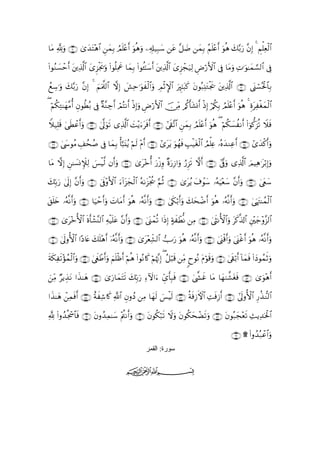 ٱلْعِلْمِ ۚ إِنَّ رَبَّكَ هُوَ أَعْلَمُ بِمَن ضَلَّ عَن سَبِيلِهِۦ وَهُوَ أَعْلَمُ بِمَنِ ٱهْتَدَىٰ ۝ وَلِلَّهِ مَا
فِى ٱلسَّمَـٰوَٰتِ وَمَا فِى ٱلْأَرْضِ لِيَجْزِىَ ٱلَّذِينَ أَسَـٰٓـُٔوا۟ بِمَا عَمِلُوا۟ وَيَجْزِىَ ٱلَّذِينَ أَحْسَنُوا۟
بِٱلْحُسْنَى ۝ ٱلَّذِينَ يَجْتَنِبُونَ كَبَـٰٓئِرَ ٱلْإِثْمِ وَٱلْفَوَٰحِشَ إِلَّا ٱللَّمَمَ ۚ إِنَّ رَبَّكَ وَٰسِعُ
ٱلْمَغْفِرَةِ ۚ هُوَ أَعْلَمُ بِكُمْ إِذْ أَنشَأَكُم مِّنَ ٱلْأَرْضِ وَإِذْ أَنتُمْ أَجِنَّةٌ فِى بُطُونِ أُمَّهَـٰتِكُمْ ۖ
فَلَا تُزَكُّوٓا۟ أَنفُسَكُمْ ۖ هُوَ أَعْلَمُ بِمَنِ ٱتَّقَىٰٓ ۝ أَفَرَءَيْتَ ٱلَّذِى تَوَلَّىٰ ۝ وَأَعْطَىٰ قَلِيلًا
وَأَكْدَىٰٓ ۝ أَعِندَهُۥ عِلْمُ ٱلْغَيْبِ فَهُوَ يَرَىٰٓ ۝ أَمْ لَمْ يُنَبَّأْ بِمَا فِى صُحُفِ مُوسَىٰ ۝
وَإِبْرَٰهِيمَ ٱلَّذِى وَفَّىٰٓ ۝ أَلَّا تَزِرُ وَازِرَةٌ وِزْرَ أُخْرَىٰ ۝ وَأَن لَّيْسَ لِلْإِنسَـٰنِ إِلَّا مَا
سَعَىٰ ۝ وَأَنَّ سَعْيَهُۥ سَوْفَ يُرَىٰ ۝ ثُمَّ يُجْزَىٰهُ ٱلْجَزَآءَ ٱلْأَوْفَىٰ ۝ وَأَنَّ إِلَىٰ رَبِّكَ
ٱلْمُنتَهَىٰ ۝ وَأَنَّهُۥ هُوَ أَضْحَكَ وَأَبْكَىٰ ۝ وَأَنَّهُۥ هُوَ أَمَاتَ وَأَحْيَا ۝ وَأَنَّهُۥ خَلَقَ
ٱلزَّوْجَيْنِ ٱلذَّكَرَ وَٱلْأُنثَىٰ ۝ مِن نُّطْفَةٍ إِذَا تُمْنَىٰ ۝ وَأَنَّ عَلَيْهِ ٱلنَّشْأَةَ ٱلْأُخْرَىٰ ۝
وَأَنَّهُۥ هُوَ أَغْنَىٰ وَأَقْنَىٰ ۝ وَأَنَّهُۥ هُوَ رَبُّ ٱلشِّعْرَىٰ ۝ وَأَنَّهُۥٓ أَهْلَكَ عَادًا ٱلْأُولَىٰ ۝
وَثَمُودَا۟ فَمَآ أَبْقَىٰ ۝ وَقَوْمَ نُوحٍ مِّن قَبْلُ ۖ إِنَّهُمْ كَانُوا۟ هُمْ أَظْلَمَ وَأَطْغَىٰ ۝ وَٱلْمُؤْتَفِكَةَ
أَهْوَىٰ ۝ فَغَشَّىٰهَا مَا غَشَّىٰ ۝ فَبِأَىِّ ءَالَآءِ رَبِّكَ تَتَمَارَىٰ ۝ هَـٰذَا نَذِيرٌ مِّنَ
ٱلنُّذُرِ ٱلْأُولَىٰٓ ۝ أَزِفَتِ ٱلْـَٔازِفَةُ ۝ لَيْسَ لَهَا مِن دُونِ ٱللَّهِ كَاشِفَةٌ ۝ أَفَمِنْ هَـٰذَا
ٱلْحَدِيثِ تَعْجَبُونَ ۝ وَتَضْحَكُونَ وَلَا تَبْكُونَ ۝ وَأَنتُمْ سَـٰمِدُونَ ۝ فَٱسْجُدُوا۟ لِلَّهِ
وَٱعْبُدُوا۟ ۩ ۝
سورة: القمر